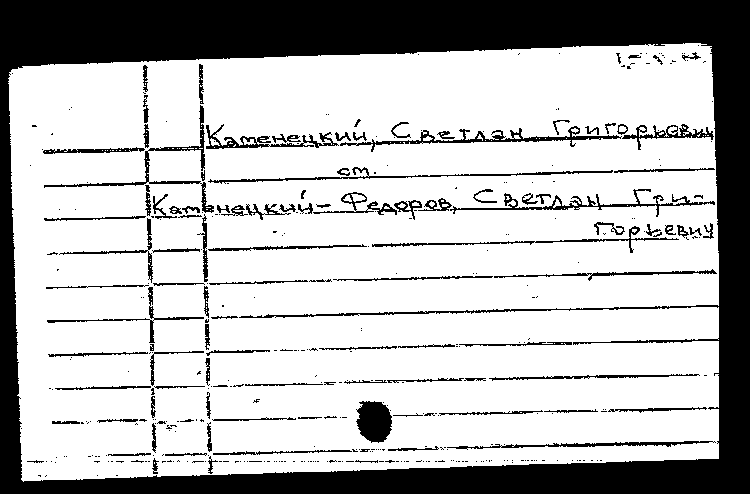 Каменецкий, Светлан Григорьевич
см.
Каменецкий-Федоров, Светлан Гри-
горьевич